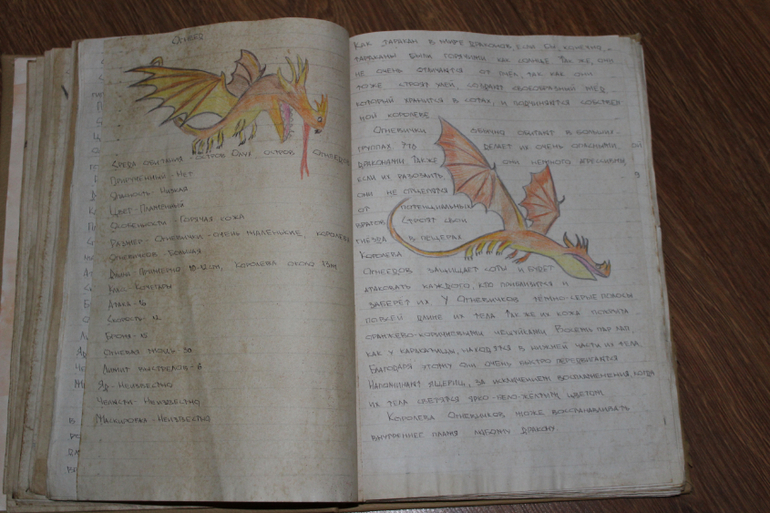 Огневер
Среда обитания остров Олух остров Огневедов
Приручённый - Нет
Опасность - Низкая
Цвет - Пламенный
Особенности - Горячая кожа
Размер - Огневички - очень маленькие, королева
Огневиков - Большая
Длина - Примерно 10-12см, Королева около
Класс - Кочегары
Атака -
Скорость -
Броня -
Огневая мощь
Лимит выстрелов - 6
Яд - Неизвестно
Челюсти - Неизвестно
Маскировка - Неизвестно
Как таракан в мире драконов, если бы, конечно,
тараканы были горячими как солнце. Так же, они
не очень отличатся от пчёл, так как они
тоже строят улей, создают своеобразный мёд
который хранится в сотах, и подчиняются собствен
ной королеве.
Огневички обычно обитают в больших
группах, что делает их очень опасными,
драконами. Также они немного агрессивны,
если их разозлить,
они не спрячатся
от потенциальных
врагов. Строят свои
гнёзда в пещерах
Королева
Огневедов защищает соты и будет
атаковать каждого, кто приблизится и
заберёт их. У Огневичков тёмно-серые полосы
по всей длине их тела. Так же их кожа покрыта
оранжево-коричневыми чешуйками. Восемь пар лап,
как у каракатицы, находятся в нижней части их тела.
Благодаря этому они очень быстро передвигаются
Напоминают ящериц, за исключением воспламенения, когда
их тела светятся ярко-бело-жёлтым цветом.
Королева Огневиков может восстанавливать
внутреннее пламя любому дракону